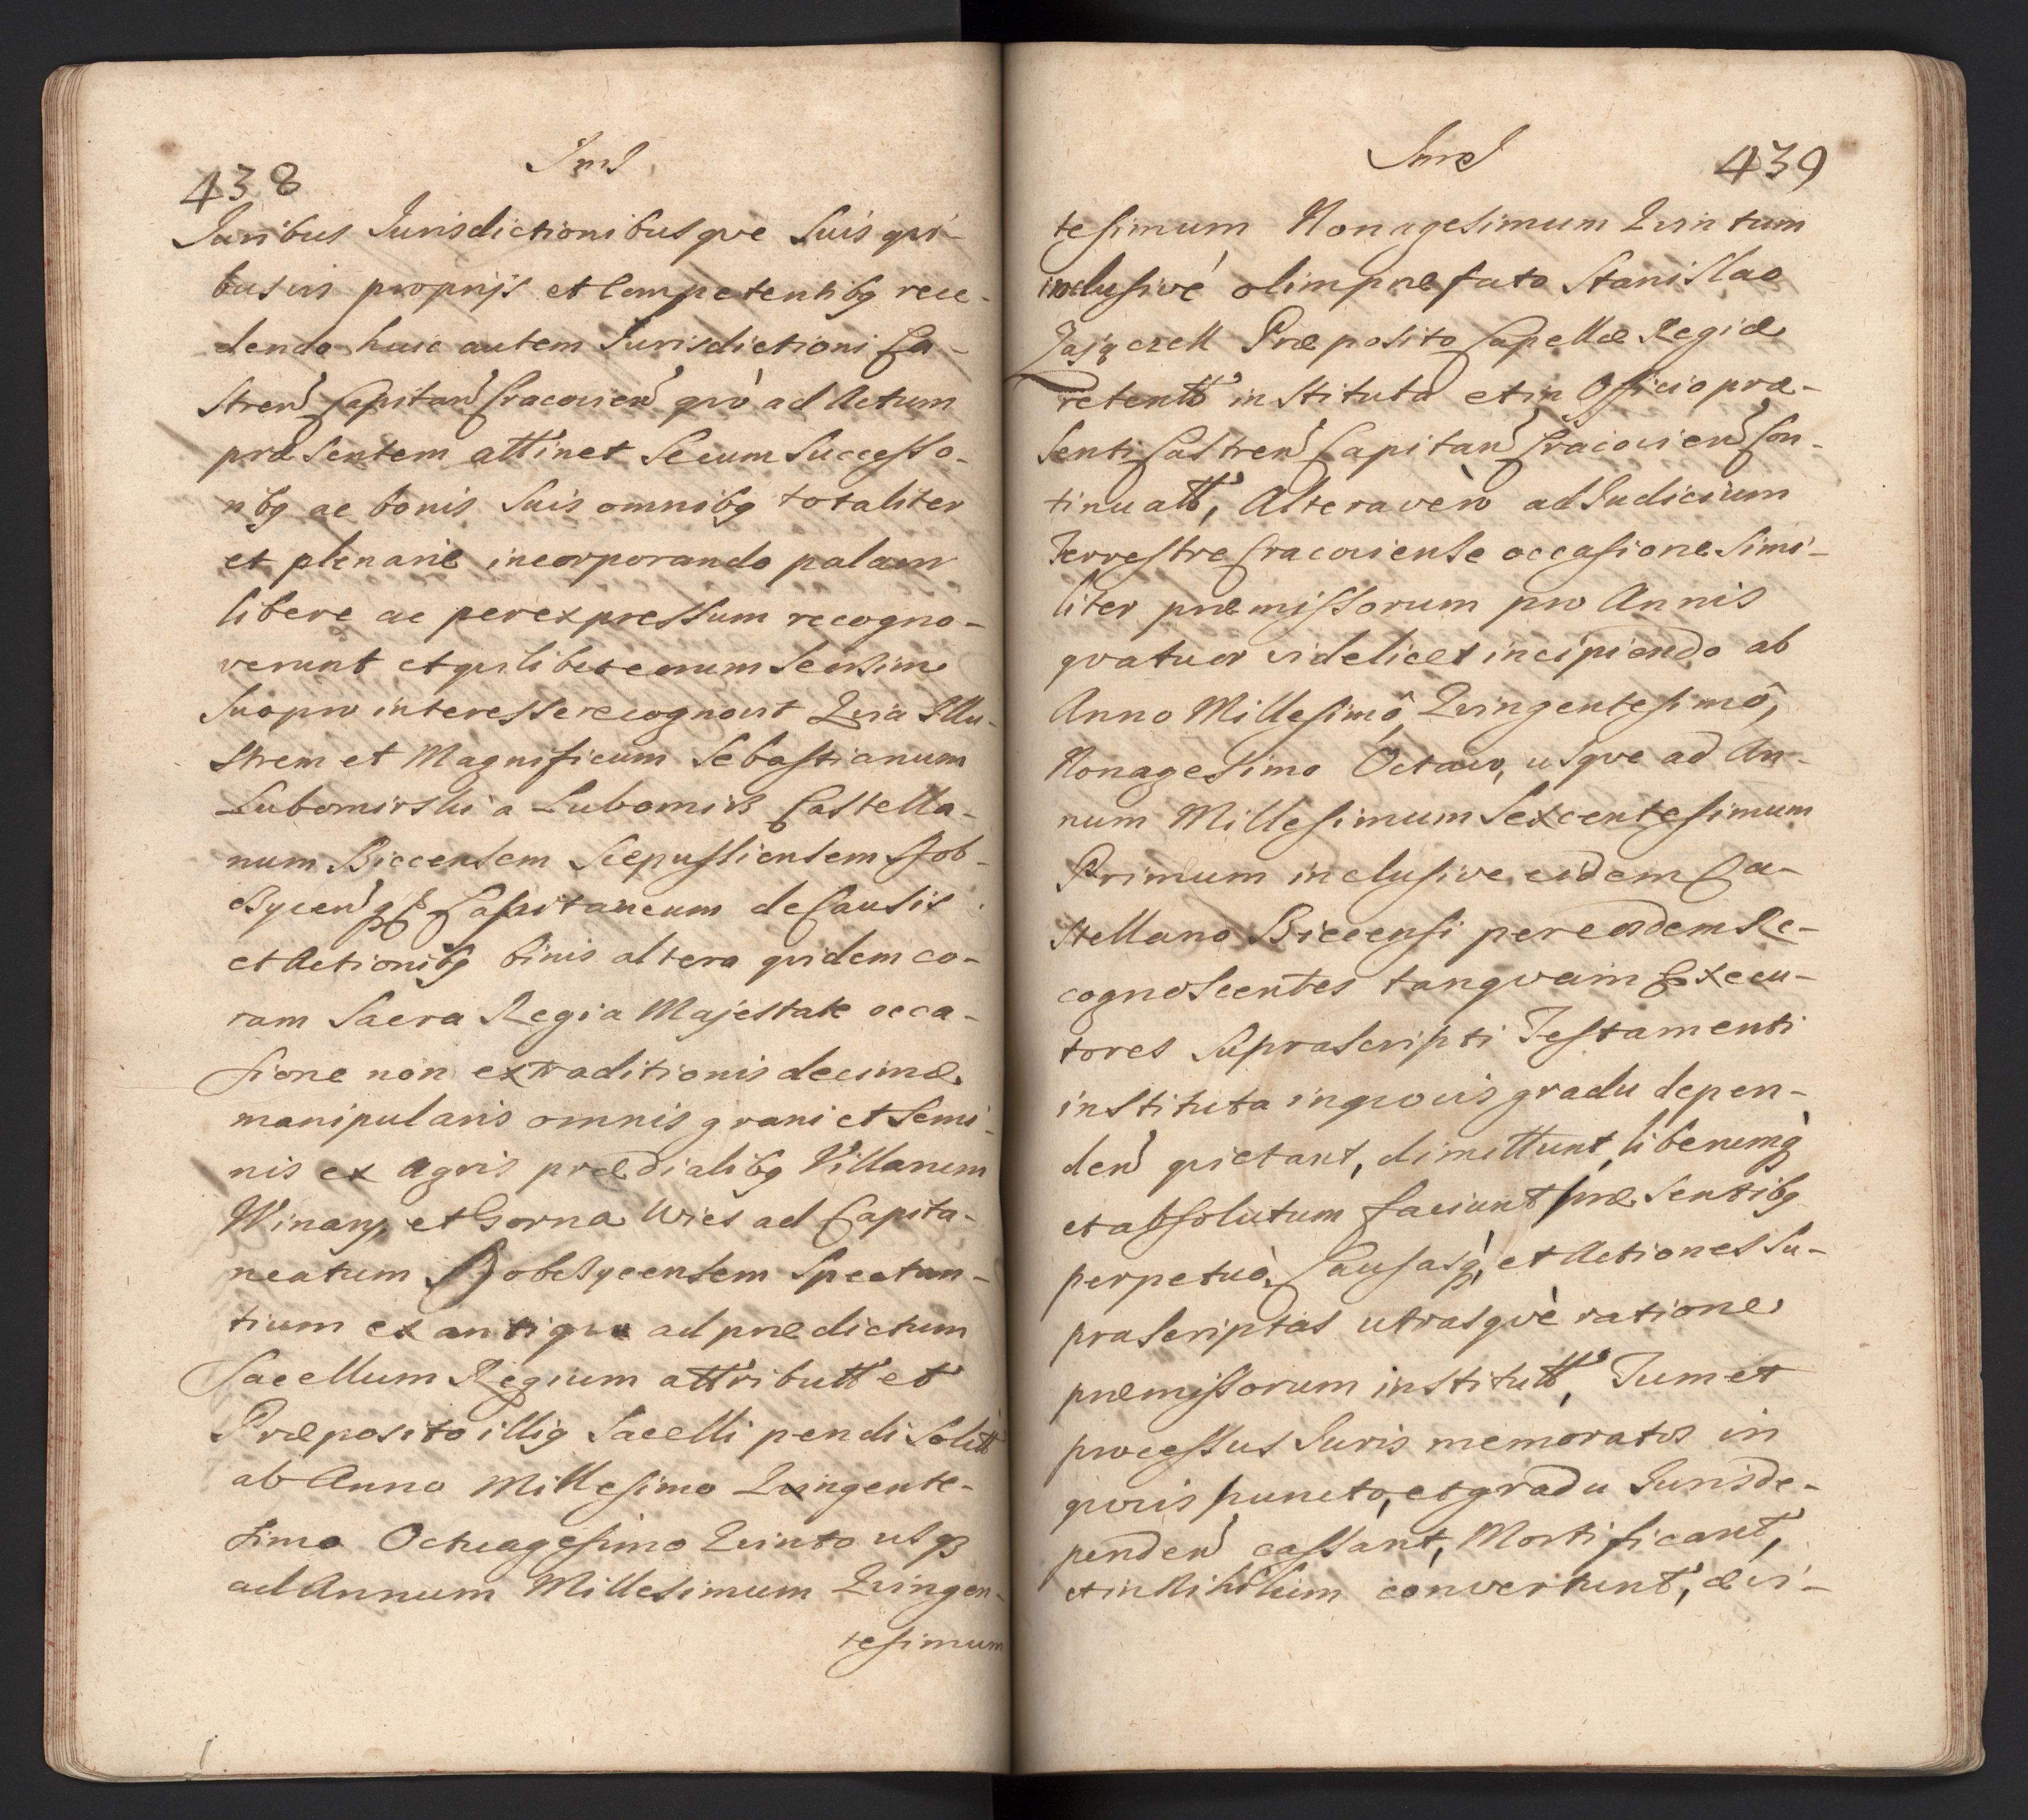 438
Juribus Jurisdictionibusqve Suis qvi-
busvis proprijs et Competentibq rece-
dendo huic autem Jurisdictioni Ca-
Stren Capitan Cracovien qvò ad Actum
præsentem attinet Secum Successo-
ribq ac bonis Suis omnibq totaliter
et plenarie incorporando palam
libere ac per expressum recogno-
verunt et qvilibet eorum Seorsim
Suo pro interesse recognovit Qvia Illu-
Strem et Magnificum Sebastianum
Lubomirski a Lubomirz Castella-
num Biecensem Scepusiensem Dob-
czycen qɜ Capitaneum de Causis
et Actionibq binis altera qvidem co-
ram Sacra Regia Majestate occa-
sione non extraditionis decimæ
manipularis omnis grani et Semi-
nis ex Agris prædialibq Villarum
Winary et Gorna Wies ad Capita-
neatum Dobczycensem Spectan-
tium ex antiqvo ad prædictum
Sacellum Regium attributt et
Præposito illiq Sacelli pendi Solitt
ab Anno Millesimo Qvingente-
simo Octuagesimo Qvinto usqɜ
ad Annum Millesimum Qvingen-
tesimum
439
tesimum Nonagesimum Qvintum
inclusivè olim præfato Stanislao
Zajączek Præposito Capellæ Regiæ
retentt instituta et in Officio præ-
Senti Castren Capitan Cracovien Con-
tinuatt, Altera verò ad Judicium
Terrestre Cracoviense occasione Simi-
liter præmissorum pro Annis
qvatuor videlicet incipiendo ab
Anno Millesimô Qvingentesimô,
Nonagesimo Octavo, usqve ad An-
num Millesimum Sexcentesimum
Primum inclusive eidem Ca-
Stellano Biecensi per eosdem Re-
cognoscentes tanqvam Execu-
tores Suprascripti Testamenti
instituta in qvovis gradu depen-
den qvietant, dimittunt, liberumq
et absolutum faciunt præSentibq
perpetuò, Causasq, et Actiones Su-
praScriptas utrasqvè ratione
præmissorum institutt, Tum et
processus Juris memoratos in
qvovis puncto, et gradu Juris de-
penden cassant, Mortificant,
et in Nihilum convertunt, æ vi-